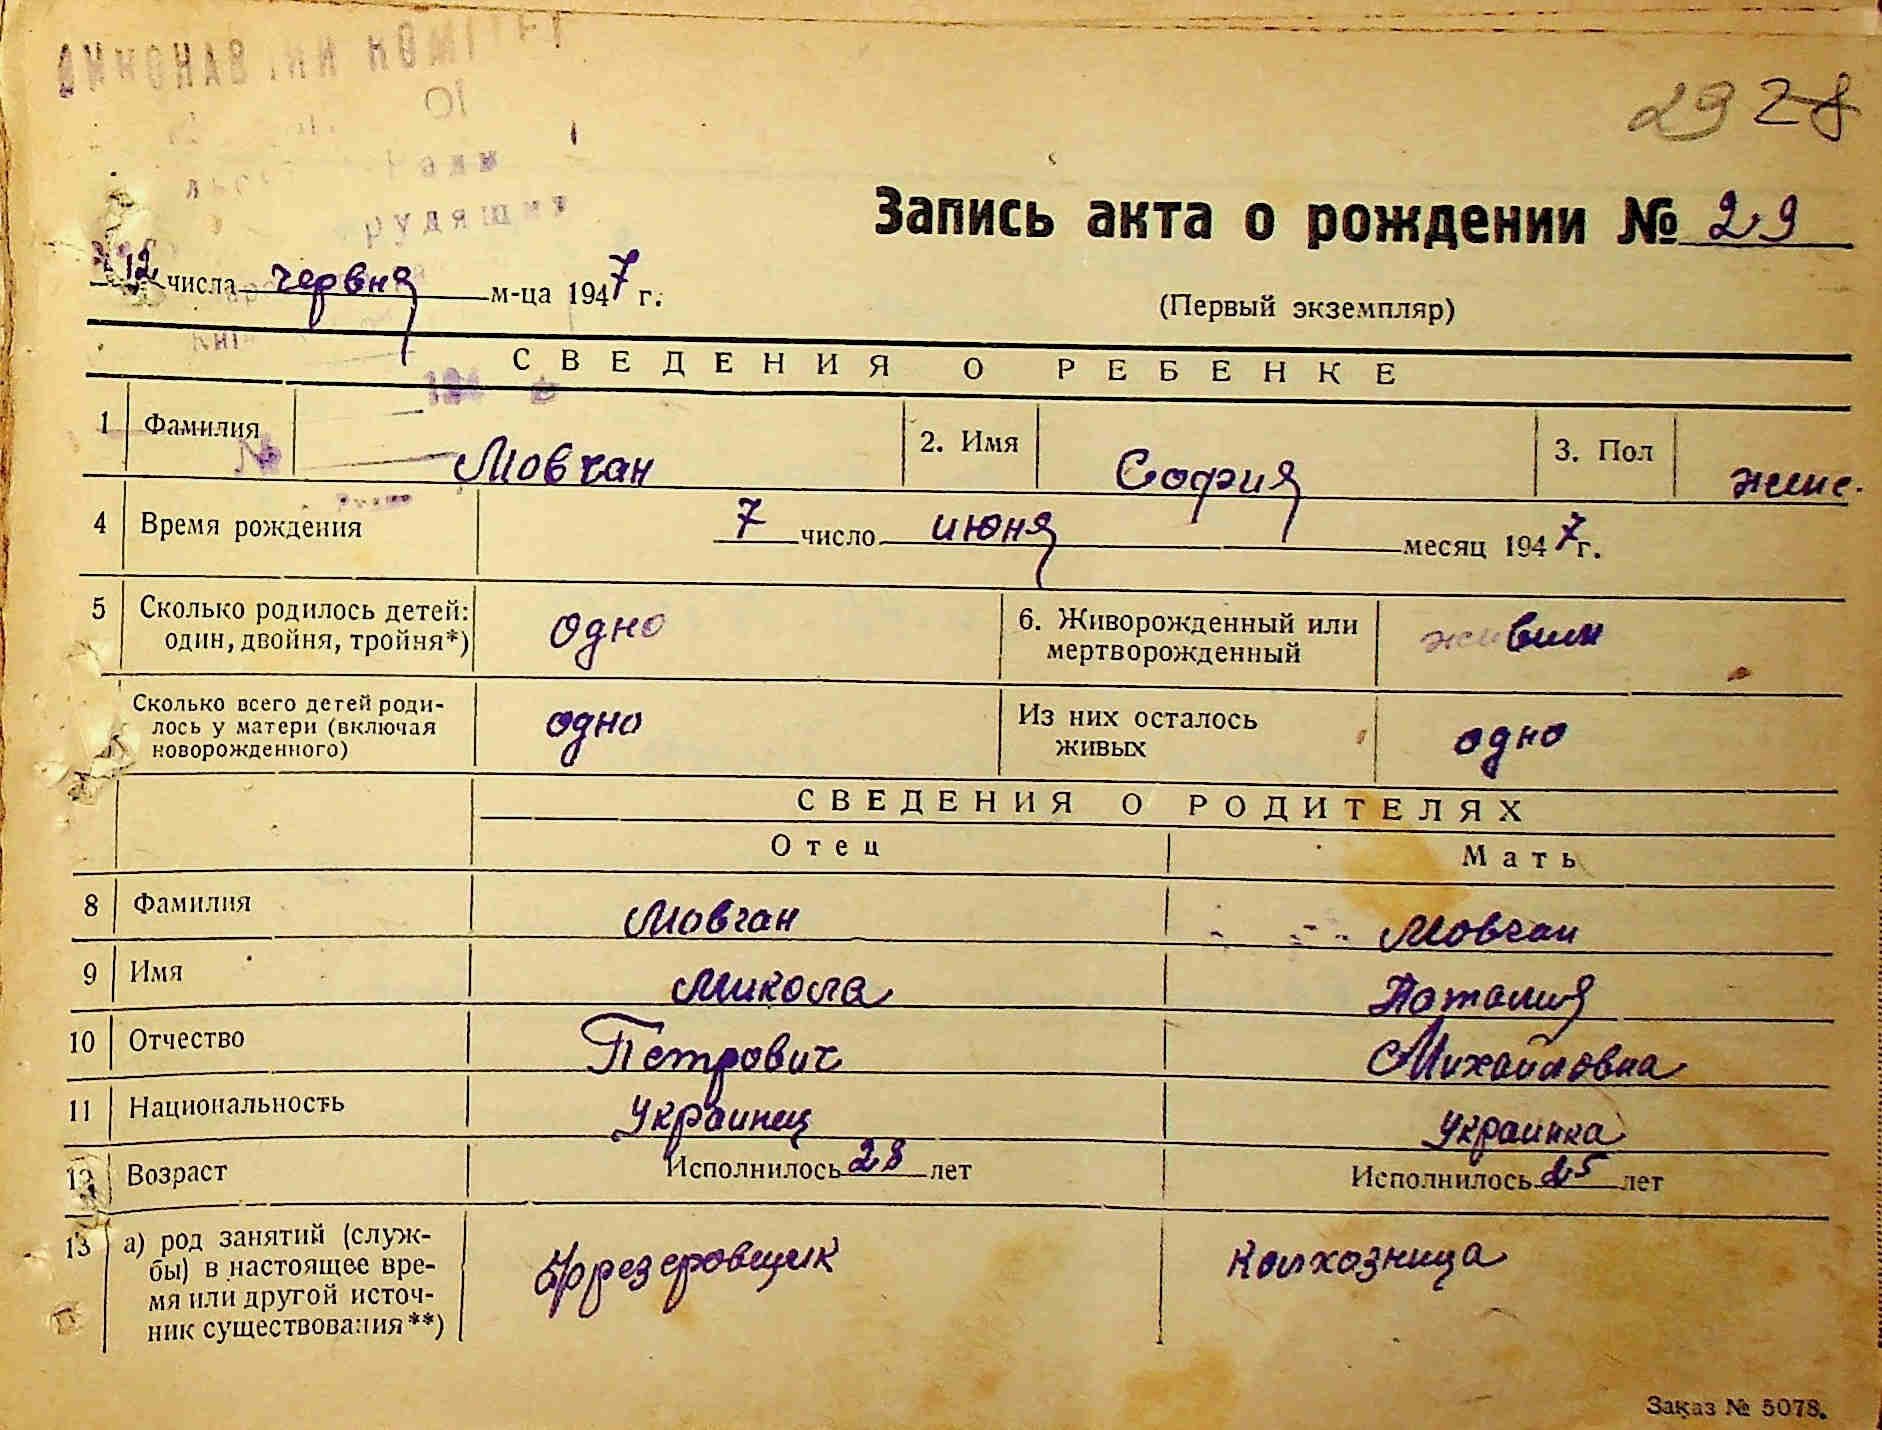 2928
Запись акта о рождении № 29
12 числа червня м-ца 1947 г.
(Первый экземпляр)
СВЕДЕНИЯ О РЕБЕНКЕ
1 Фамилия Мовчан 2. Имя София 3. Пол женс.
4 Время рождения 7 число июня месяц 1947 г.
5 Сколько родилось детей: один, двойня, тройня*) одно 6. Живорожденный или мертворожденный живим
Сколько всего детей роди-
лось у матери (включая
новорожденного) одно Из них осталось живых одно
СВЕДЕНИЯ О РОДИТЕЛЯХ
Отец Мать
8 Фамилия Мовчан Мовчан
9 Имя Микола Наталия
10 Отчество Петрович Михайловна
11 Национальность Украинец Украинка
12 Возраст Исполнилось 28 лет Исполнилось 25 лет
13 а) род занятий (служ-
бы) в настоящее вре-
мя или другой источ-
ник существования**) Фрезеровщик Колхозница
Заказ № 5078.